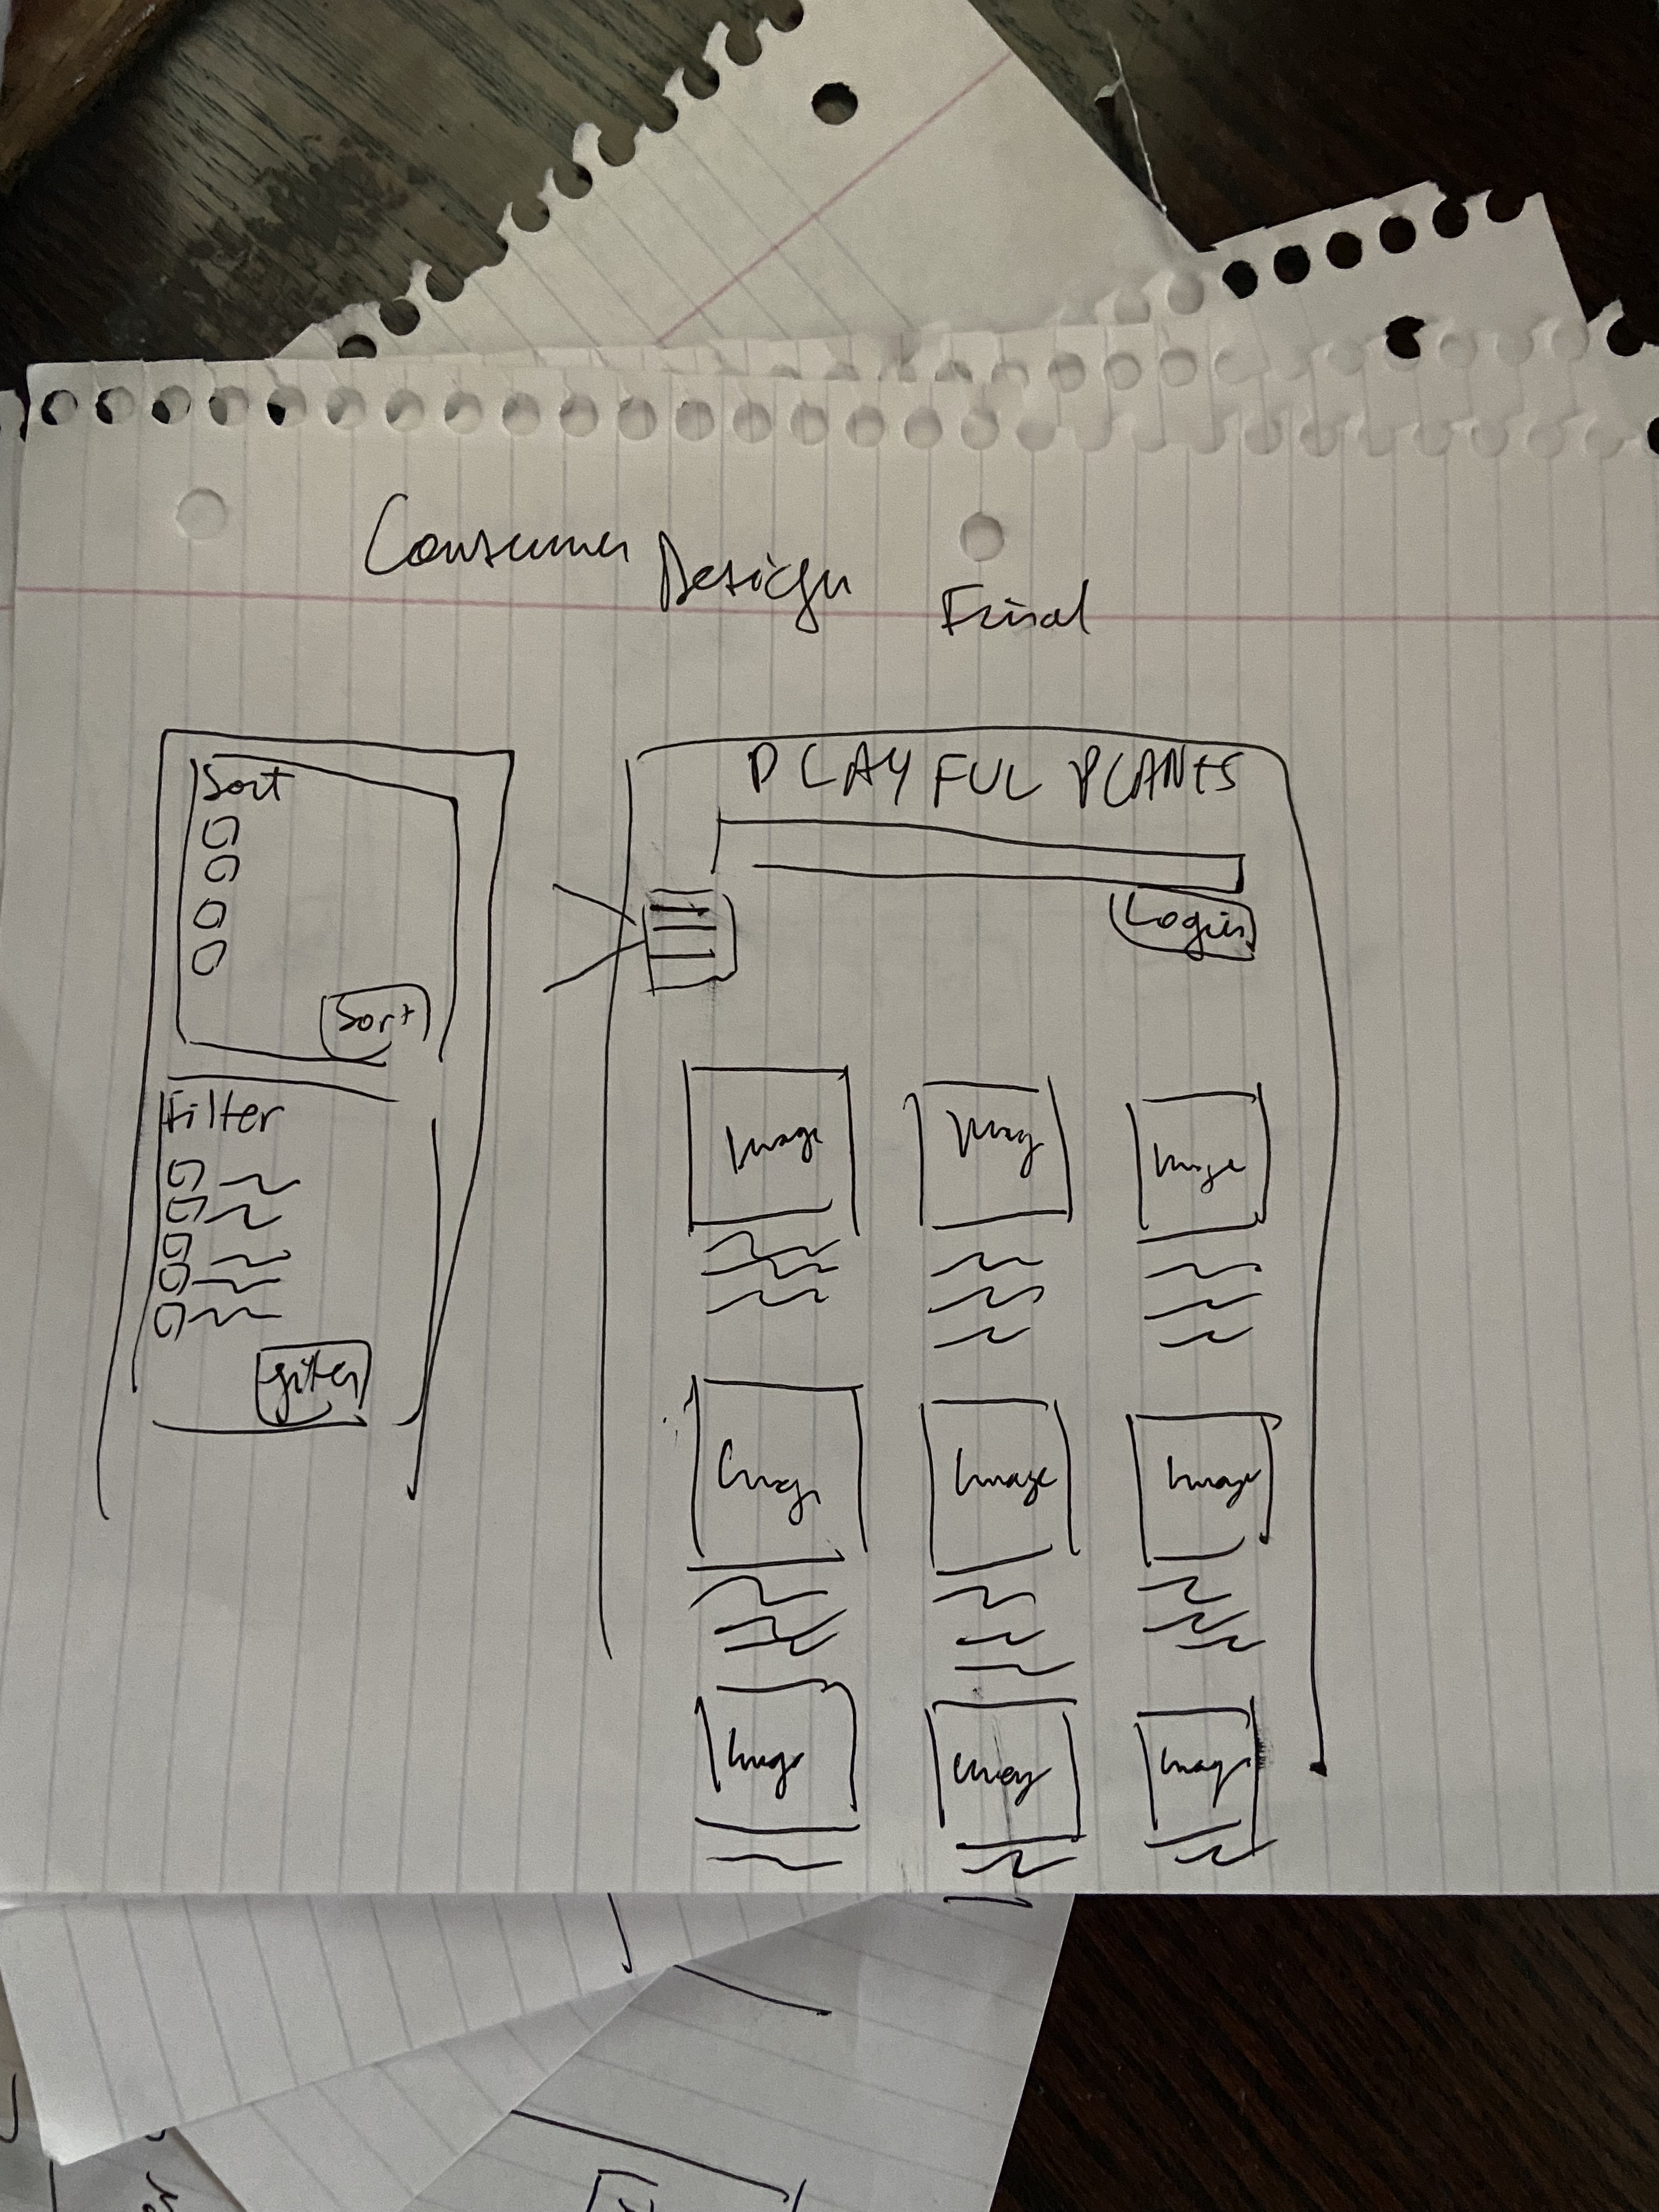 Consumer Design Final
Sort
Sort
Filter
filter
PLAYFUL PLANTS
Login
Image Image Image
Image Image Image
Image Image Image